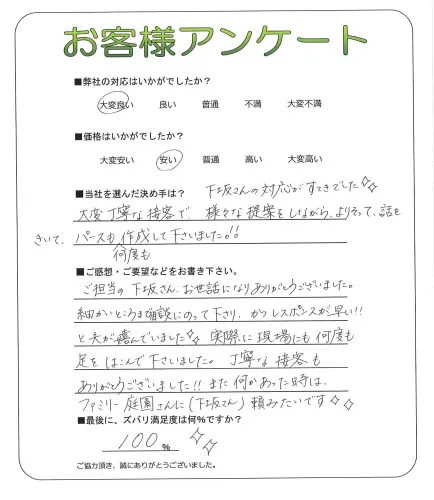 お客様アンケート
■弊社の対応はいかがでしたか?
大変良い 良い 普通 不満 大変不満
■価格はいかがでしたか?
大変安い 安い 普通 高い 大変高い
■当社を選んだ決め手は? 下坂さんの対応がすてきでした☆☆
大変丁寧な接客で、様々な提案をしながら、よりそって、話を
きいて、パースも何度も作成して下さいました!!
■ご感想・ご要望などをお書き下さい。
ご担当の下坂さん、お世話になりありがとうございました。
細かいところまで相談にのって下さり、かつレスポンスが早い!!
と夫が喜んでいました☆☆ 実際に現場にも何度も
足をはこんで下さいました。丁寧な接客も
ありがとうございました!!また何かあった時は、
ファミリー庭園さんに(下坂さん)頼みたいです☆☆
■最後に、ズバリ満足度は何%ですか?
100%
ご協力頂き、誠にありがとうございました。